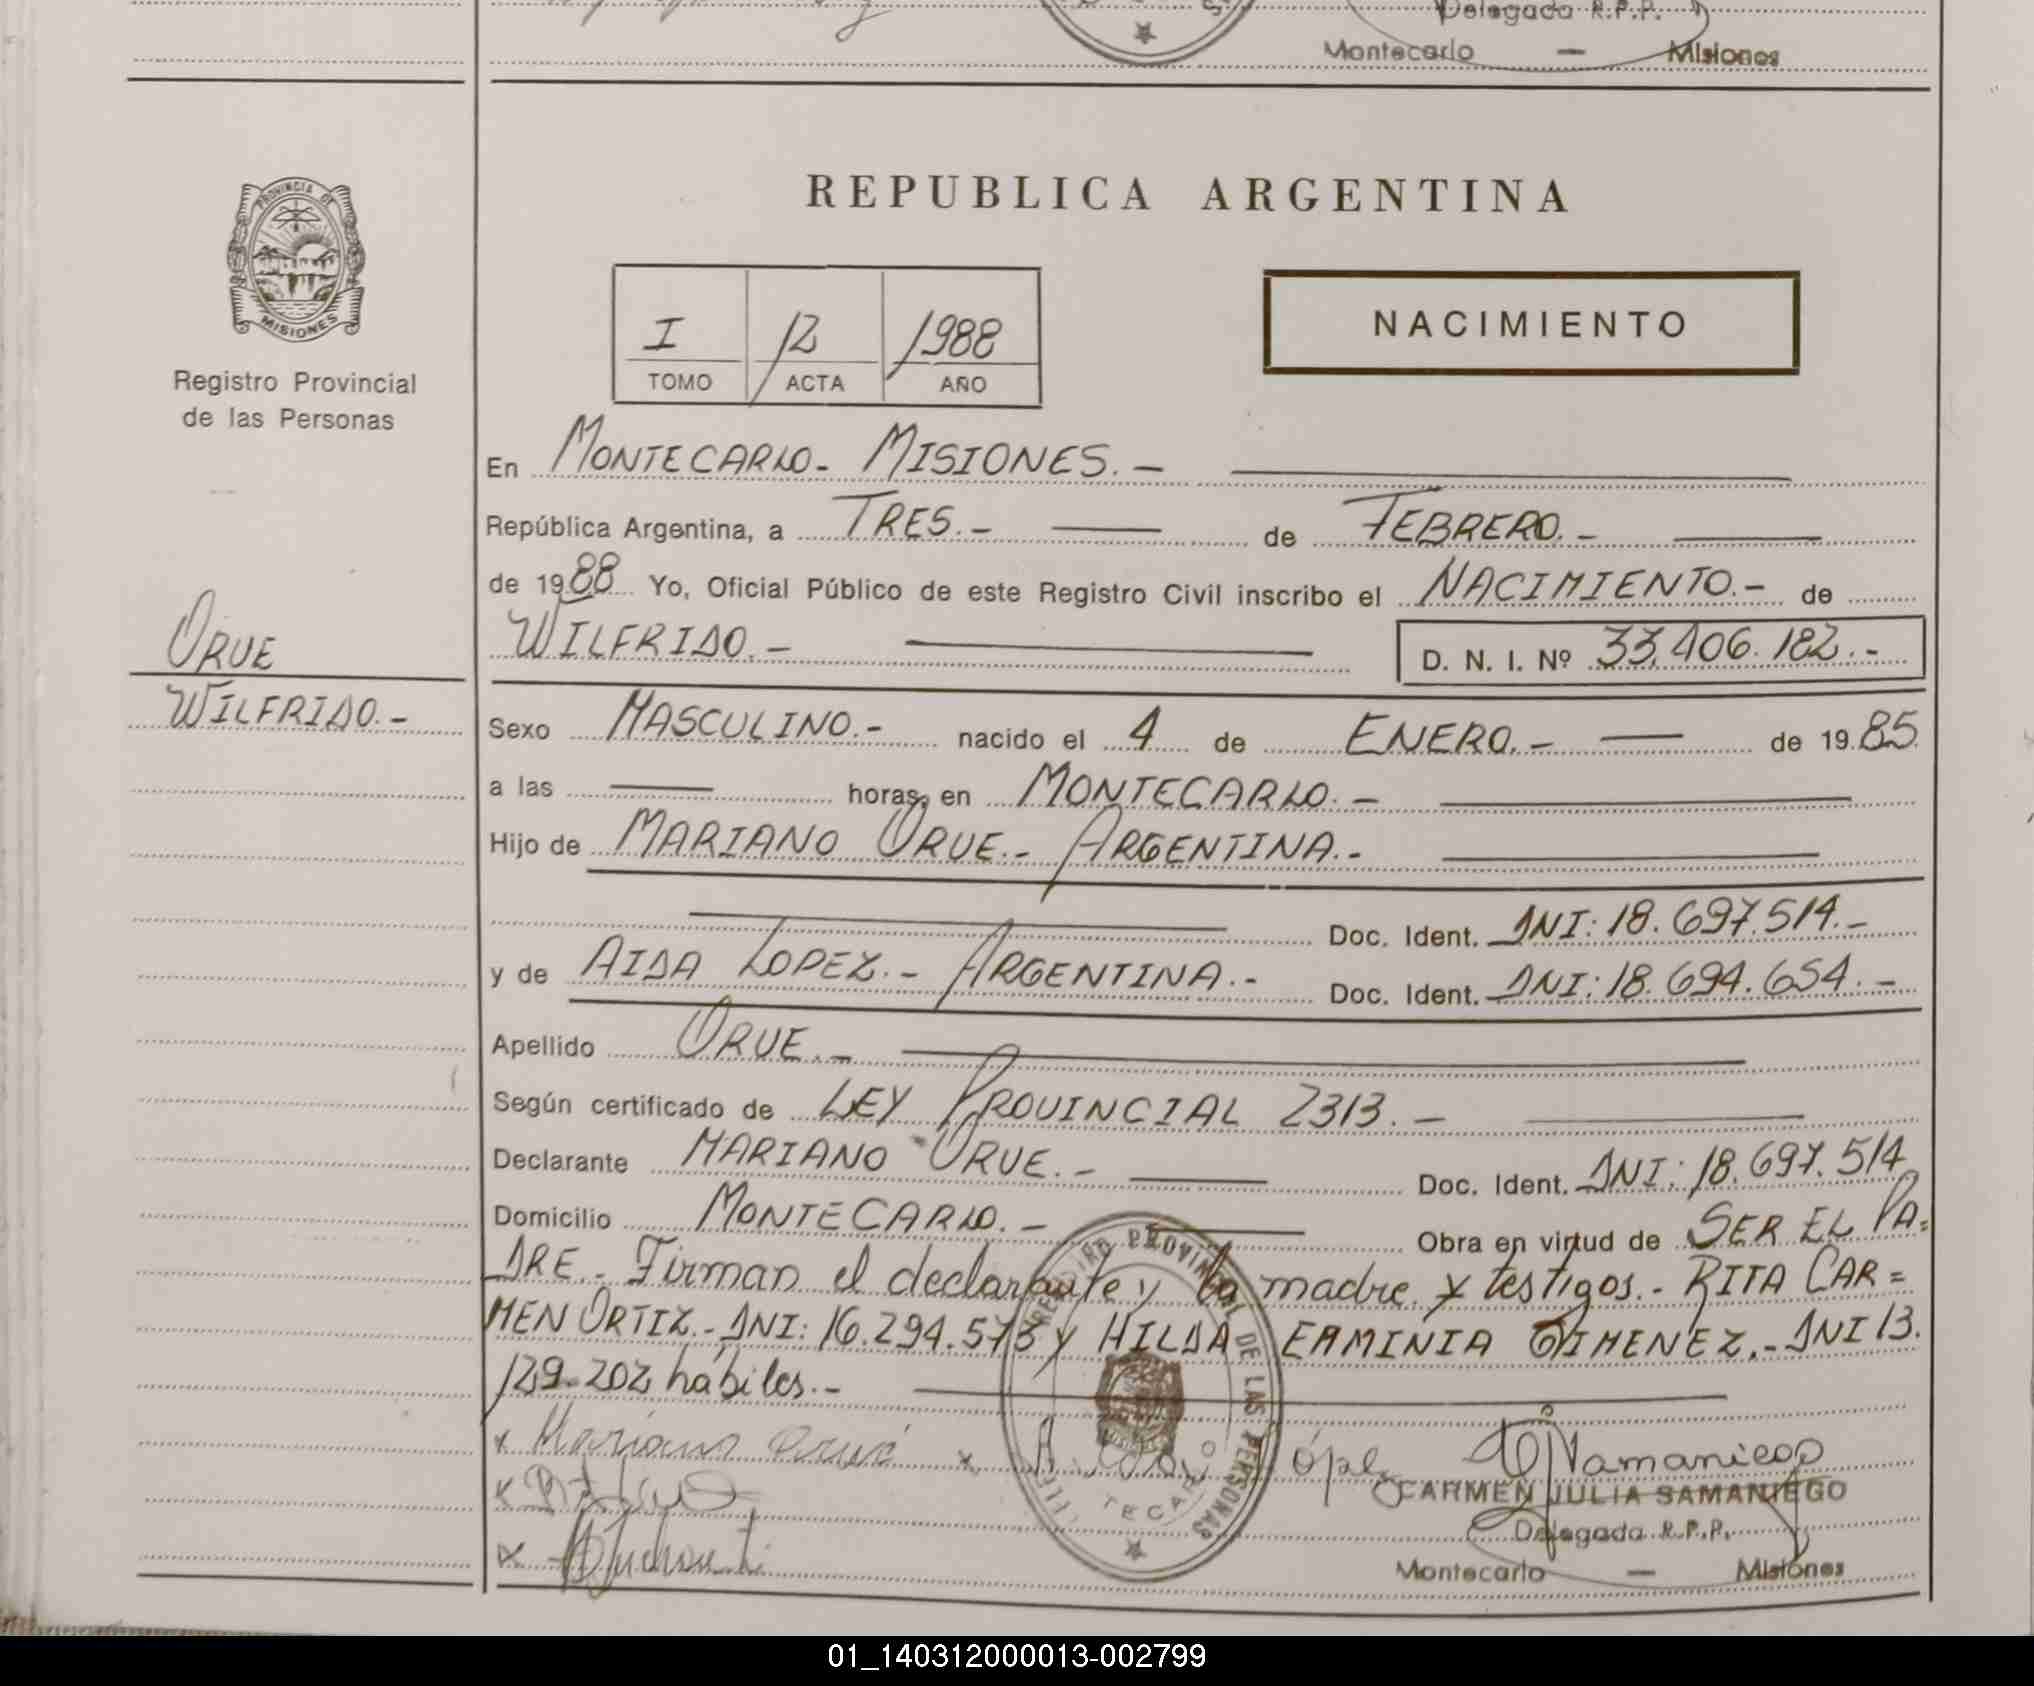 Delegada R.P.P.
Montecarlo — Misiones
PROVINCIA DE
MISIONES
Registro Provincial
de las Personas
REPUBLICA ARGENTINA
I 12 1988
TOMO ACTA AÑO
NACIMIENTO
En MONTECARLO- MISIONES.-
República Argentina, a TRES.- de FEBRERO.-
de 1988 Yo, Oficial Público de este Registro Civil inscribo el NACIMIENTO.- de
WILFRIDO.- D. N. I. Nº 33.406.182.-
ORUE
WILFRIDO.-
Sexo MASCULINO.- nacido el 4 de ENERO.- de 1985.
a las horas, en MONTECARLO.-
Hijo de MARIANO ORUE.- ARGENTINA.-
Doc. Ident. DNI: 18.697.514.-
y de AIDA LOPEZ.- ARGENTINA.- Doc. Ident. DNI: 18.694.654.-
Apellido ORUE.-
Según certificado de LEY PROVINCIAL 2313.-
Declarante MARIANO ORUE.- Doc. Ident. DNI: 18.697.514
Domicilio MONTECARLO.- Obra en virtud de SER EL PA=
DRE.- Firman el declarante y la madre y testigos.- RITA CAR=
MEN ORTIZ.- DNI: 16.294.573 y HILDA ERMINIA GIMENEZ.- DNI 13.
129.202 hábiles.-
REGISTRO PROVINCIAL DE LAS PERSONAS
x Mariano Orué x
CARMEN JULIA SAMANIEGO
Delegada R.P.P.
Montecarlo — Misiones
01_140312000013-002799